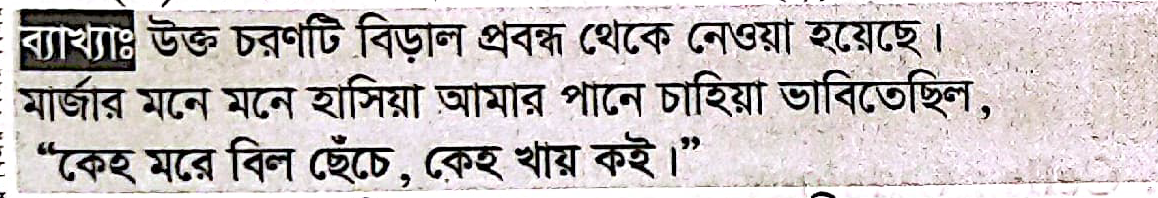 ব্যাখ্যাঃ উক্ত চরণটি বিড়াল প্রবন্ধ থেকে নেওয়া হয়েছে।
মার্জার মনে মনে হাসিয়া আমার পানে চাহিয়া ভাবিতেছিল,
“কেহ মরে বিল ছেঁচে, কেহ খায় কই।”